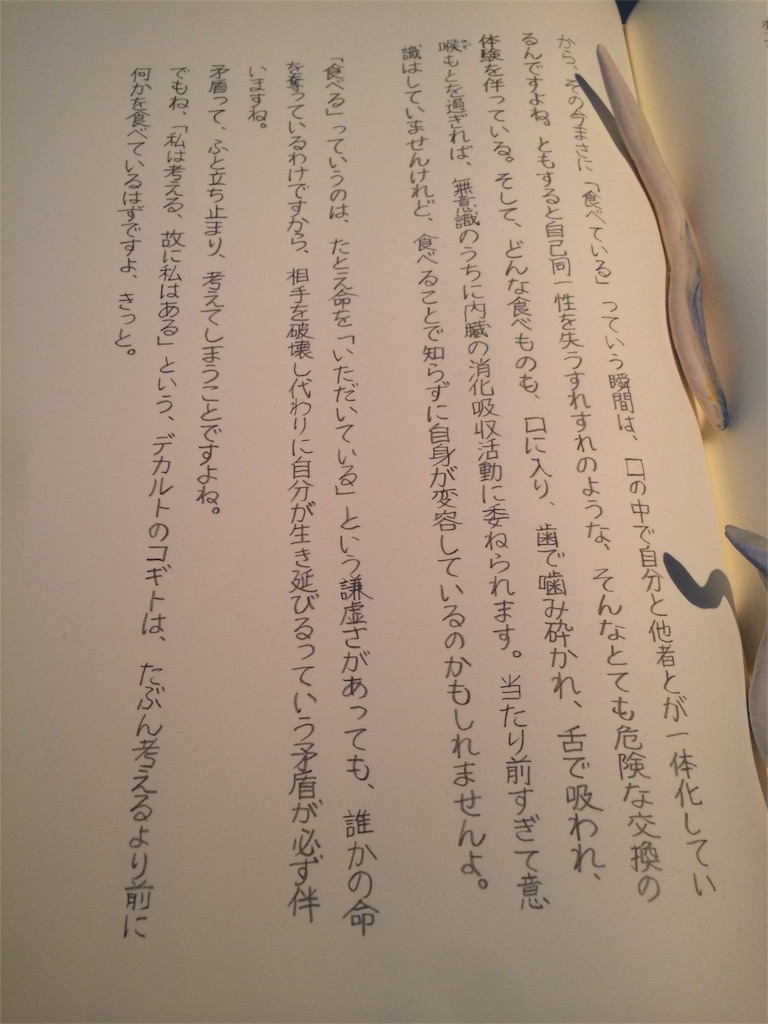 から、その今まさに「食べている」っていう瞬間は、口の中で自分と他者とが一体化してい
るんですよね。ともすると自己同一性を失うすれすれのような、そんなとても危険な交換の
体験を伴っている。そして、どんな食べものも、口に入り、歯で噛み砕かれ、舌で吸われ、
喉もとを過ぎれば、無意識のうちに内臓の消化吸収活動に委ねられます。当たり前すぎて意
識はしていませんけれど、食べることで知らずに自身が変容しているのかもしれませんよ。
「食べる」っていうのは、たとえ命を「いただいている」という謙虚さがあっても、誰かの命
を奪っているわけですから、相手を破壊し代わりに自分が生き延びるっていう矛盾が必ず伴
いますね。
矛盾って、ふと立ち止まり、考えてしまうことですよね。
でもね、「私は考える、故に私はある」という、デカルトのコギトは、たぶん考えるより前に
何かを食べているはずですよ、きっと。